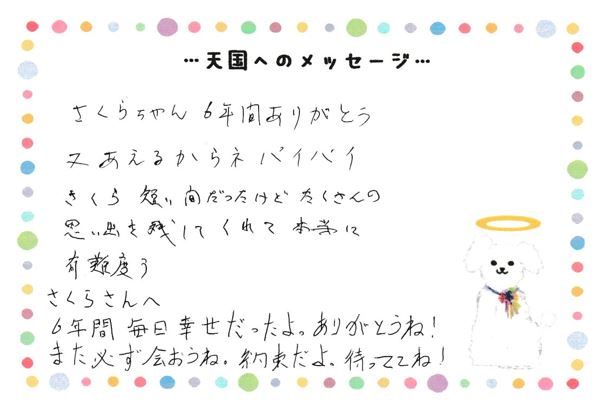 …天国へのメッセージ…
さくらちゃん 6年間ありがとう
又あえるからネ バイバイ
さくら 短い間だったけど たくさんの
思い出を残してくれて 本当に
有難度う
さくらさんへ
6年間 毎日幸せだったよ。ありがとうね!
また必ず会おうね。約束だよ。待っててね!